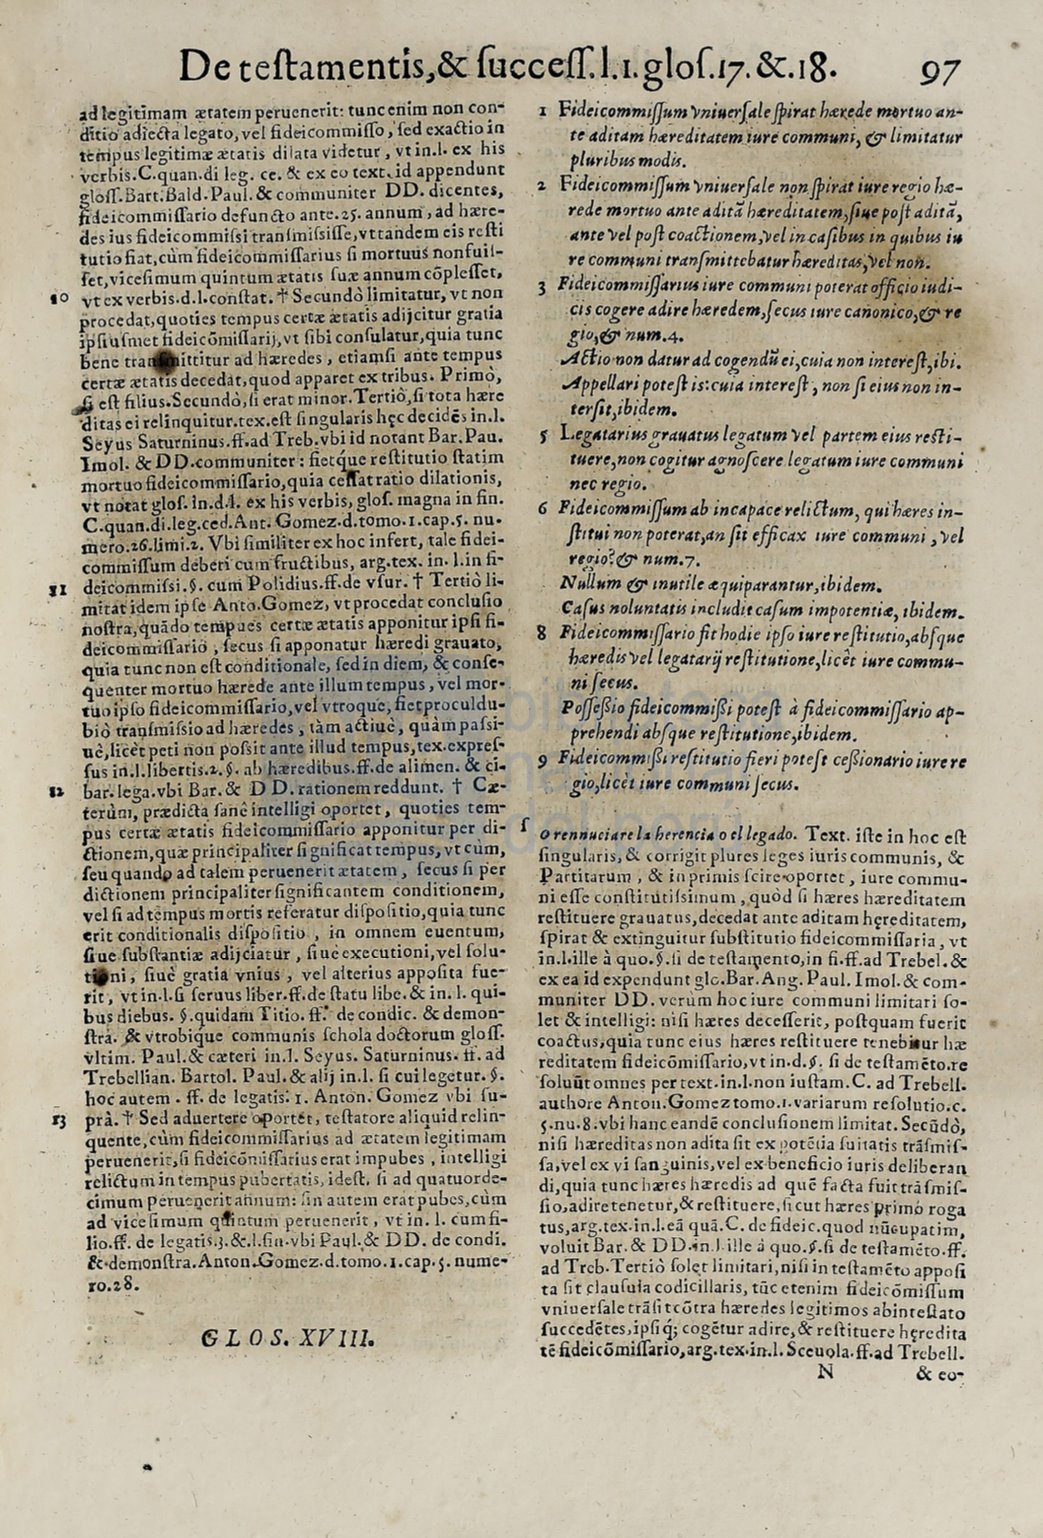 De teſtamentis,& ſucceſſ.l.1.gloſ.17.&.18. 97
ad legitimam ætatem peruenerit: tunc enim non con-
ditio adiecta legato, vel fideicommiſſo, ſed exactio in
tempus legitimæ ætatis dilata videtur, vt in.l. ex his
verbis.C.quan.di leg. ce. & ex eo text.id appendunt
gloſſ.Bart.Bald.Paul.& communiter DD. dicentes,
fideicommiſſario defuncto ante.25. annum, ad hære-
des ius fideicommiſsi tranſmiſsiſſe,vt tandem eis reſti
tutio fiat,cùm fideicommiſſarius ſi mortuus non fuiſ-
ſet,viceſimum quintum ætatis ſuæ annum cōpleſſet,
10 vt ex verbis.d.l.conſtat. † Secundò limitatur, vt non
procedat,quoties tempus certæ ætatis adijcitur gratia
ipſiuſmet fideicōmiſſarij,vt ſibi conſulatur,quia tunc
bene tranſmittitur ad hæredes, etiamſi ante tempus
certæ ætatis decedat,quod apparet ex tribus. Primò,
ſi eſt filius.Secundò,ſi erat minor.Tertiò,ſi tota hære
ditas ei relinquitur.tex.eſt ſingularis hęc decidēs in.l.
Seyus Saturninus.ff.ad Treb.vbi id notant Bar.Pau.
Imol. & DD.communiter: fietque reſtitutio ſtatim
mortuo fideicommiſſario,quia ceſſat ratio dilationis,
vt notat gloſ. in.d.l. ex his verbis, gloſ. magna in fin.
C.quan.di.leg.ced.Ant. Gomez.d.tomo.1.cap.5. nu-
mero.26.limi.2. Vbi ſimiliter ex hoc infert, tale fidei-
commiſſum deberi cum fructibus, arg.tex. in. l.in fi-
11 deicommiſsi.§. cum Polidius.ff.de vſur. † Tertiò li-
mitat idem ipſe Anto.Gomez, vt procedat concluſio
noſtra,quādo tempus certæ ætatis apponitur ipſi fi-
deicommiſſario, ſecus ſi apponatur hæredi grauato,
quia tunc non eſt conditionale, ſed in diem, & conſe-
quenter mortuo hærede ante illum tempus, vel mor-
tuo ipſo fideicommiſſario,vel vtroque, fiet proculdu-
biò tranſmiſsio ad hæredes, tàm actiuè, quàm paſsi-
uè,licèt peti non poſsit ante illud tempus,tex.expreſ-
ſus in.l.libertis.2.§. ab hæredibus.ff.de alimen. & ci-
12 bar.lega.vbi Bar.& DD. rationem reddunt. † Cæ-
terùm, prædicta ſanè intelligi oportet, quoties tem-
pus certæ ætatis fideicommiſſario apponitur per di-
ctionem,quæ principaliter ſignificat tempus,vt cùm,
ſeu quando ad talem peruenerit ætatem, ſecus ſi per
dictionem principaliter ſignificantem conditionem,
vel ſi ad tempus mortis referatur diſpoſitio,quia tunc
erit conditionalis diſpoſitio, in omnem euentum,
ſiue ſubſtantiæ adijciatur, ſiue executioni,vel ſolu-
tioni, ſiuè gratia vnius, vel alterius appoſita fue-
rit, vt in.l.ſi ſeruus liber.ff.de ſtatu libe.& in. l. qui-
bus diebus. §.quidam Titio. ff. de condic. & demon-
ſtra. & vtrobique communis ſchola doctorum gloſſ.
vltim. Paul.& cæteri in.l. Seyus. Saturninus. ff. ad
Trebellian. Bartol. Paul.& alij in.l. ſi cui legetur.§.
hoc autem. ff. de legatis. 1. Anton. Gomez vbi ſu-
13 prà. † Sed aduertere oportet, teſtatore aliquid relin-
quente,cùm fideicommiſſarius ad ætatem legitimam
peruenerit,ſi fideicōmiſſarius erat impubes, intelligi
relictum in tempus pubertatis, ideſt, ſi ad quatuorde-
cimum peruenerit annum: ſin autem erat pubes,cùm
ad viceſimum quintum peruenerit, vt in. l. cum fi-
lio.ff. de legatis.3.&.l.fin.vbi Paul.& DD. de condi.
& demonſtra.Anton.Gomez.d.tomo.1.cap.5.nume-
ro.28.
GLOS. XVIII.
1 Fideicommiſſum vniuerſale ſpirat hærede mortuo an-
te aditam hæreditatem iure communi, & limitatur
pluribus modis.
2 Fideicommiſſum vniuerſale non ſpirat iure regio hæ-
rede mortuo ante aditā hæreditatem,ſiue poſt aditā,
ante vel poſt coactionem,vel in caſibus in quibus iu
re communi tranſmittebatur hæreditas,vel non.
3 Fideicommiſſarius iure communi poterat officio iudi-
cis cogere adire hæredem,ſecus iure canonico,& re
gio,& num.4.
Actio non datur ad cogendū ei,cuia non intereſt,ibi.
Appellari poteſt is:cuia intereſt, non ſi eius non in-
terſit,ibidem.
5 Legatarius grauatus legatum vel partem eius reſti-
tuere,non cogitur agnoſcere legatum iure communi
nec regio.
6 Fideicommiſſum ab incapace relictum, qui hæres in-
ſtitui non poterat,an ſit efficax iure communi, vel
regio?& num.7.
Nullum & inutile æquiparantur,ibidem.
Caſus noluntatis includit caſum impotentiæ, ibidem.
8 Fideicommiſſario fit hodie ipſo iure reſtitutio,abſque
hæredis vel legatarij reſtitutione,licèt iure commu-
ni ſecus.
Poſſeſsio fideicommiſsi poteſt à fideicommiſſario ap-
prehendi abſque reſtitutione,ibidem.
9 Fideicommiſsi reſtitutio fieri poteſt ceſsionario iure re
gio,licèt iure communi ſecus.
ſ o rennuciare la herencia o el legado. Text. iſte in hoc eſt
ſingularis,& corrigit plures leges iuris communis, &
Partitarum, & in primis ſcire oportet, iure commu-
ni eſſe conſtitutiſsimum, quòd ſi hæres hæreditatem
reſtituere grauatus,decedat ante aditam hęreditatem,
ſpirat & extinguitur ſubſtitutio fideicommiſſaria, vt
in.l.ille à quo.§.ſi de teſtamento,in fi.ff.ad Trebel.&
ex ea id expendunt glo.Bar.Ang.Paul.Imol.& com-
muniter DD. verùm hoc iure communi limitari ſo-
let & intelligi: niſi hæres deceſſerit, poſtquam fuerit
coactus,quia tunc eius hæres reſtituere tenebitur hæ
reditatem fideicōmiſſario,vt in.d.§. ſi de teſtamēto.re
ſoluūt omnes per text.in.l.non iuſtam.C. ad Trebell.
authore Anton.Gomez tomo.1.variarum reſolutio.c.
5.nu.8.vbi hanc eandē concluſionem limitat. Secūdò,
niſi hæreditas non adita ſit ex potētia ſuitatis trāſmiſ-
ſa,vel ex vi ſanguinis,vel ex beneficio iuris deliberan
di,quia tunc hæres hæredis ad quē facta fuit trāſmiſ-
ſio,adire tenetur,& reſtituere,ſicut hæres primò roga
tus,arg.tex.in.l.eā quā.C. de fideic.quod nūcupatim,
voluit Bar.& DD.in.l.ille à quo.§.ſi de teſtamēto.ff.
ad Treb.Tertiò ſolęt limitari,niſi in teſtamēto appoſi
ta ſit clauſula codicillaris, tūc etenim fideicōmiſſum
vniuerſale trāſit cōtra hæredes legitimos ab inteſtato
ſuccedētes,ipſiq́; cogētur adire,& reſtituere hęredita
tē fideicōmiſſario,arg.tex.in.l. Sceuola.ff.ad Trebell.
N & eo-